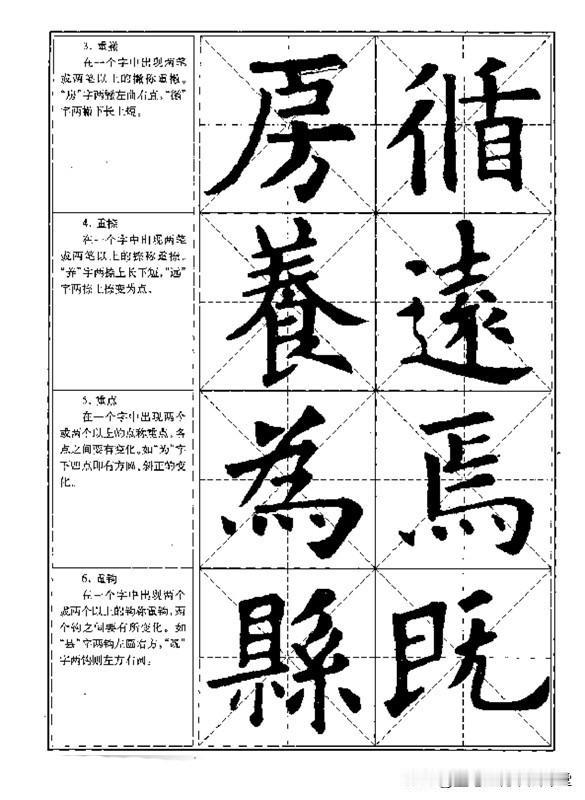 3. 重撇
在一个字中出现两笔
或两笔以上的撇称重撇。
“房”字两撇左曲右直,“循”
字两撇下长上短。
房 循
4. 重捺
在一个字中出现两笔
或两笔以上的捺称重捺。
“养”字两捺上长下短,“远”
字两捺上捺变为点。
養 遠
5. 重点
在一个字中出现两个
或两个以上的点称重点,各
点之间要有变化。如“为”字
下四点即有方圆、斜正的变
化。
為 焉
6. 重钩
在一个字中出现两个
或两个以上的钩称重钩,两
个钩之间要有所变化。如
“县”字两钩左圆右方,“既”
字两钩则左方右圆。
縣 既